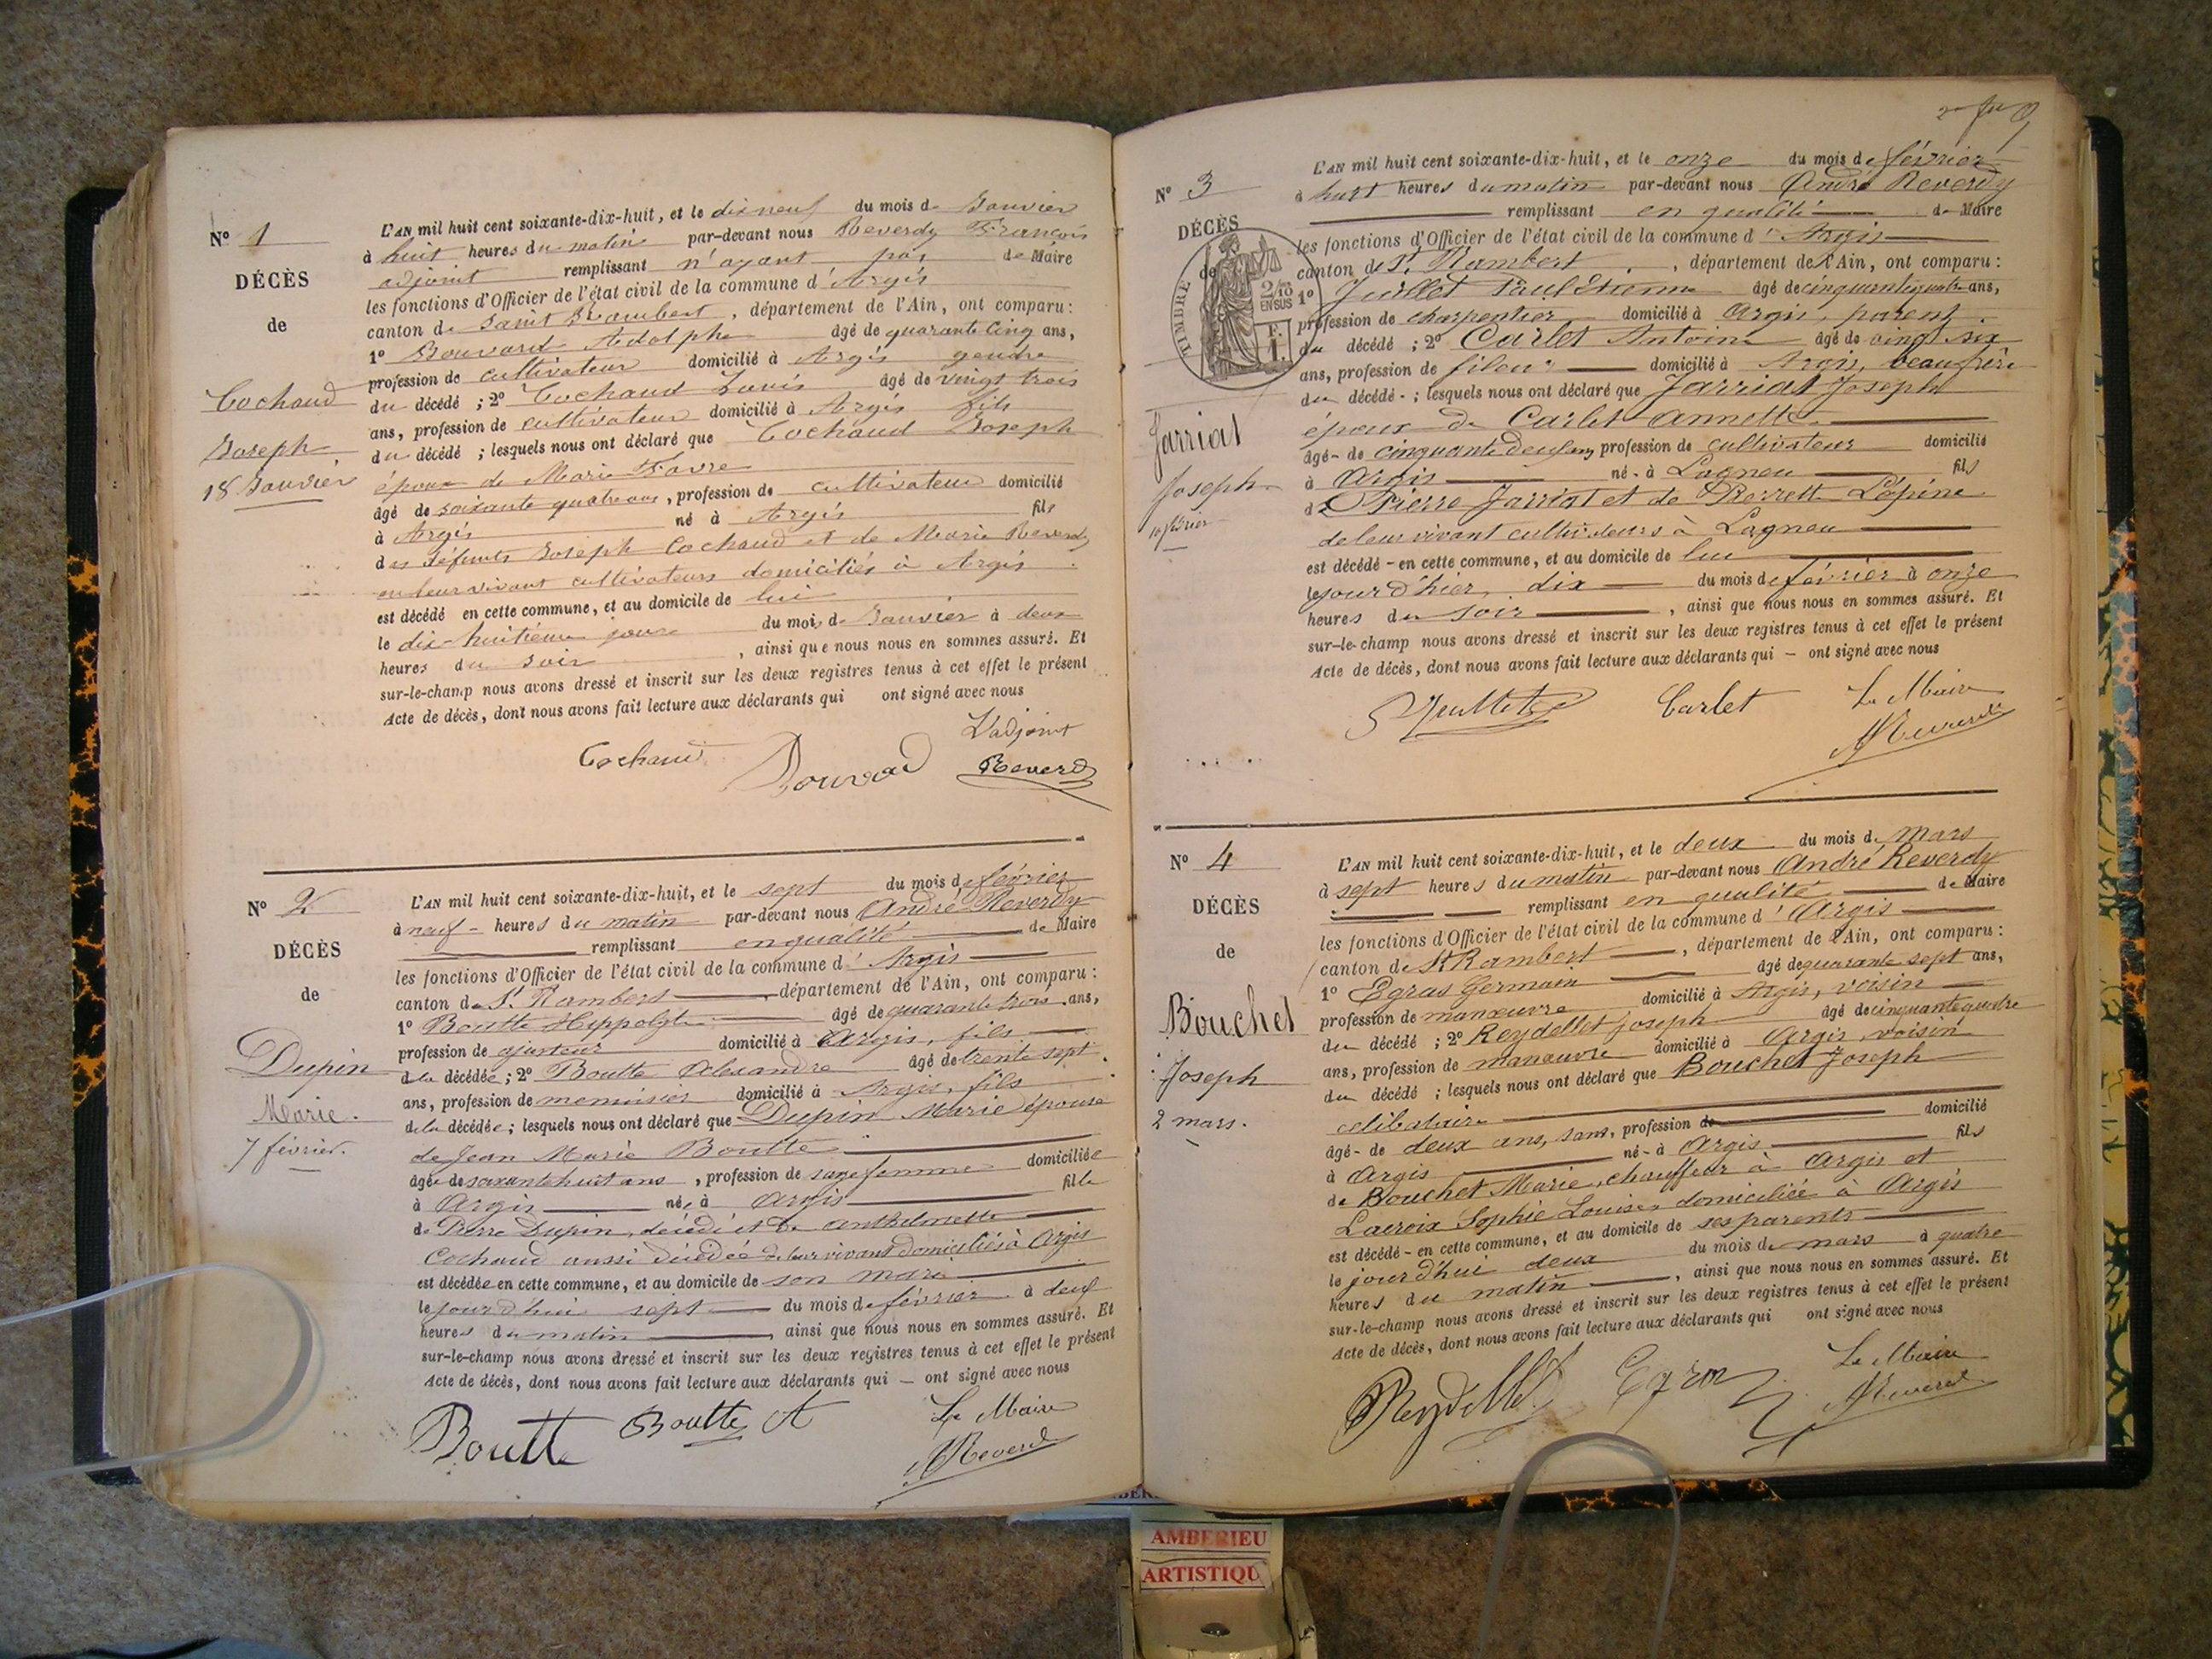 N° 1
DÉCÈS
de
Cochaud
Joseph
18 Janvier
L'AN mil huit cent soixante-dix-huit, et le dix neuf du mois de Janvier
à huit heures du matin par-devant nous Reverdy François
adjoint remplissant n'ayant pas de Maire
les fonctions d'Officier de l'état civil de la commune d'Argis
canton de Saint Rambert, département de l'Ain, ont comparu :
1° Bouvard Adolphe âgé de quarante cinq ans,
profession de cultivateur domicilié à Argis gendre
du décédé ; 2° Cochaud Louis âgé de vingt trois
ans, profession de cultivateur domicilié à Argis fils
du décédé ; lesquels nous ont déclaré que Cochaud Joseph
époux de Marie Favre
âgé de soixante quatre ans, profession de cultivateur domicilié
à Argis né à Argis fils
des défunts Joseph Cochaud et de Marie Reverdy
en leur vivant cultivateurs domiciliés à Argis
est décédé en cette commune, et au domicile de lui
le dix huitième jour du mois de Janvier à deux
heures du soir, ainsi que nous nous en sommes assuré. Et
sur-le-champ nous avons dressé et inscrit sur les deux registres tenus à cet effet le présent
Acte de décès, dont nous avons fait lecture aux déclarants qui ont signé avec nous
L'adjoint
Cochaud Bouvard Reverdy
N° 2
DÉCÈS
de
Dupin
Marie.
7 février.
L'AN mil huit cent soixante-dix-huit, et le sept du mois de février
à neuf heures du matin par-devant nous André Reverdy
remplissant en qualité de Maire
les fonctions d'Officier de l'état civil de la commune d'Argis
canton de St Rambert département de l'Ain, ont comparu :
1° Boutte Hippolyte âgé de quarante trois ans,
profession de ajusteur domicilié à Argis, fils
de la décédée ; 2° Boutte Alexandre âgé de trente sept
ans, profession de menuisier domicilié à Argis, fils
de la décédée ; lesquels nous ont déclaré que Dupin Marie épouse
de Jean Marie Boutte
âgée de soixante huit ans, profession de sage femme domiciliée
à Argis née à Argis fille
de Pierre Dupin, décédé et de Anthelmette
Cochaud aussi décédée de leur vivant domiciliés à Argis
est décédée en cette commune, et au domicile de son mari
le jourd'hui sept du mois de février à
heures du matin, ainsi que nous nous en sommes assuré. Et
sur-le-champ nous avons dressé et inscrit sur les deux registres tenus à cet effet le présent
Acte de décès, dont nous avons fait lecture aux déclarants qui – ont signé avec nous
Le Maire
Boutte Boutte A AReverdy
N° 3
DÉCÈS
de
TIMBRE
2/10
EN SUS
Jarriat
Joseph
10 février
L'AN mil huit cent soixante-dix-huit, et le onze du mois de février
à huit heures du matin par-devant nous André Reverdy
remplissant en qualité de Maire
les fonctions d'Officier de l'état civil de la commune d'Argis
canton de St Rambert, département de l'Ain, ont comparu :
1° Juillet Paul Etienne âgé de cinquante quatre ans,
profession de charpentier domicilié à Argis, parent
du décédé ; 2° Carlet Antoine âgé de vingt six
ans, profession de fileur domicilié à Argis, beau frère
du décédé ; lesquels nous ont déclaré que Jarriat Joseph
époux de Carlet Annette
âgé de cinquante deux ans profession de cultivateur domicilié
à Argis né à Lagneu fils
de Pierre Jarriat et de Pierrette Lépine
de leur vivant cultivateurs à Lagneu
est décédé en cette commune, et au domicile de lui
le jour d'hier, dix du mois de février à onze
heures du soir, ainsi que nous nous en sommes assuré. Et
sur-le-champ nous avons dressé et inscrit sur les deux registres tenus à cet effet le présent
Acte de décès, dont nous avons fait lecture aux déclarants qui – ont signé avec nous
Juillet Carlet Le Maire
AReverdy
N° 4
DÉCÈS
de
Bouchet
Joseph
2 mars.
L'AN mil huit cent soixante-dix-huit, et le deux du mois de Mars
à sept heures du matin par-devant nous André Reverdy
remplissant en qualité de Maire
les fonctions d'Officier de l'état civil de la commune d'Argis
canton de St Rambert, département de l'Ain, ont comparu :
1° Egras Germain âgé de quarante sept ans,
profession de manœuvre domicilié à Argis, voisin
du décédé ; 2° Reydellet Joseph âgé de cinquante quatre
ans, profession de manœuvre domicilié à Argis, voisin
du décédé ; lesquels nous ont déclaré que Bouchet Joseph
célibataire
âgé de deux ans, sans, profession de domicilié
à Argis né à Argis fils
de Bouchet Marie, chauffeur à Argis et
Lacroix Sophie Louise domiciliée à Argis
est décédé en cette commune, et au domicile de ses parents
le jourd'hui deux du mois de mars à quatre
heures du matin, ainsi que nous nous en sommes assuré. Et
sur-le-champ nous avons dressé et inscrit sur les deux registres tenus à cet effet le présent
Acte de décès, dont nous avons fait lecture aux déclarants qui ont signé avec nous
Le Maire
Reydellet Egras AReverdy
AMBERIEU
ARTISTIQU